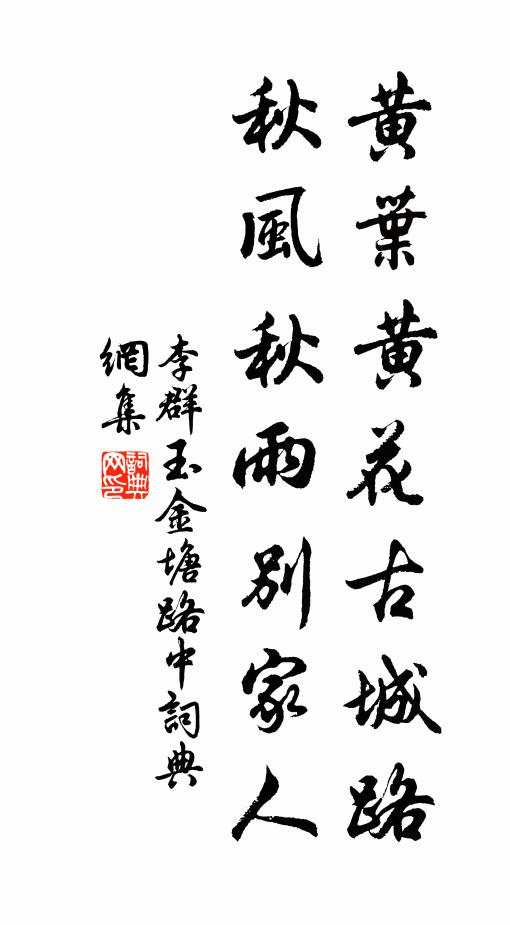 黃葉黃花古城路
秋風秋雨別家人
李群玉金塘路中詞典
網集
詞典網印